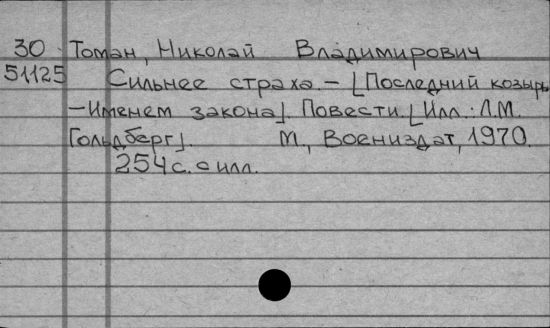 30 Томан, Николай Владимирович
51125 Сильнее страха. – [Последний козырь
– Именем закона]. Повести. [Илл.: Л.М.
Гольдберг]. М., Воениздат, 1970.
254 с. с илл.